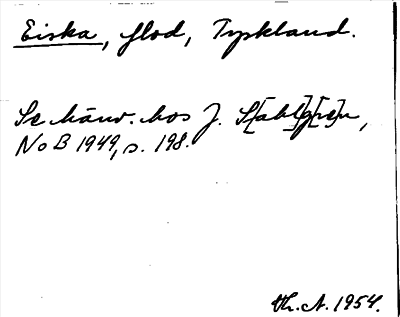 Eiska, flod, Tyskland.
Se hänv. hos J. S[ahl]g[re]n,
NoB 1949, s. 198.
Th. A. 1954.